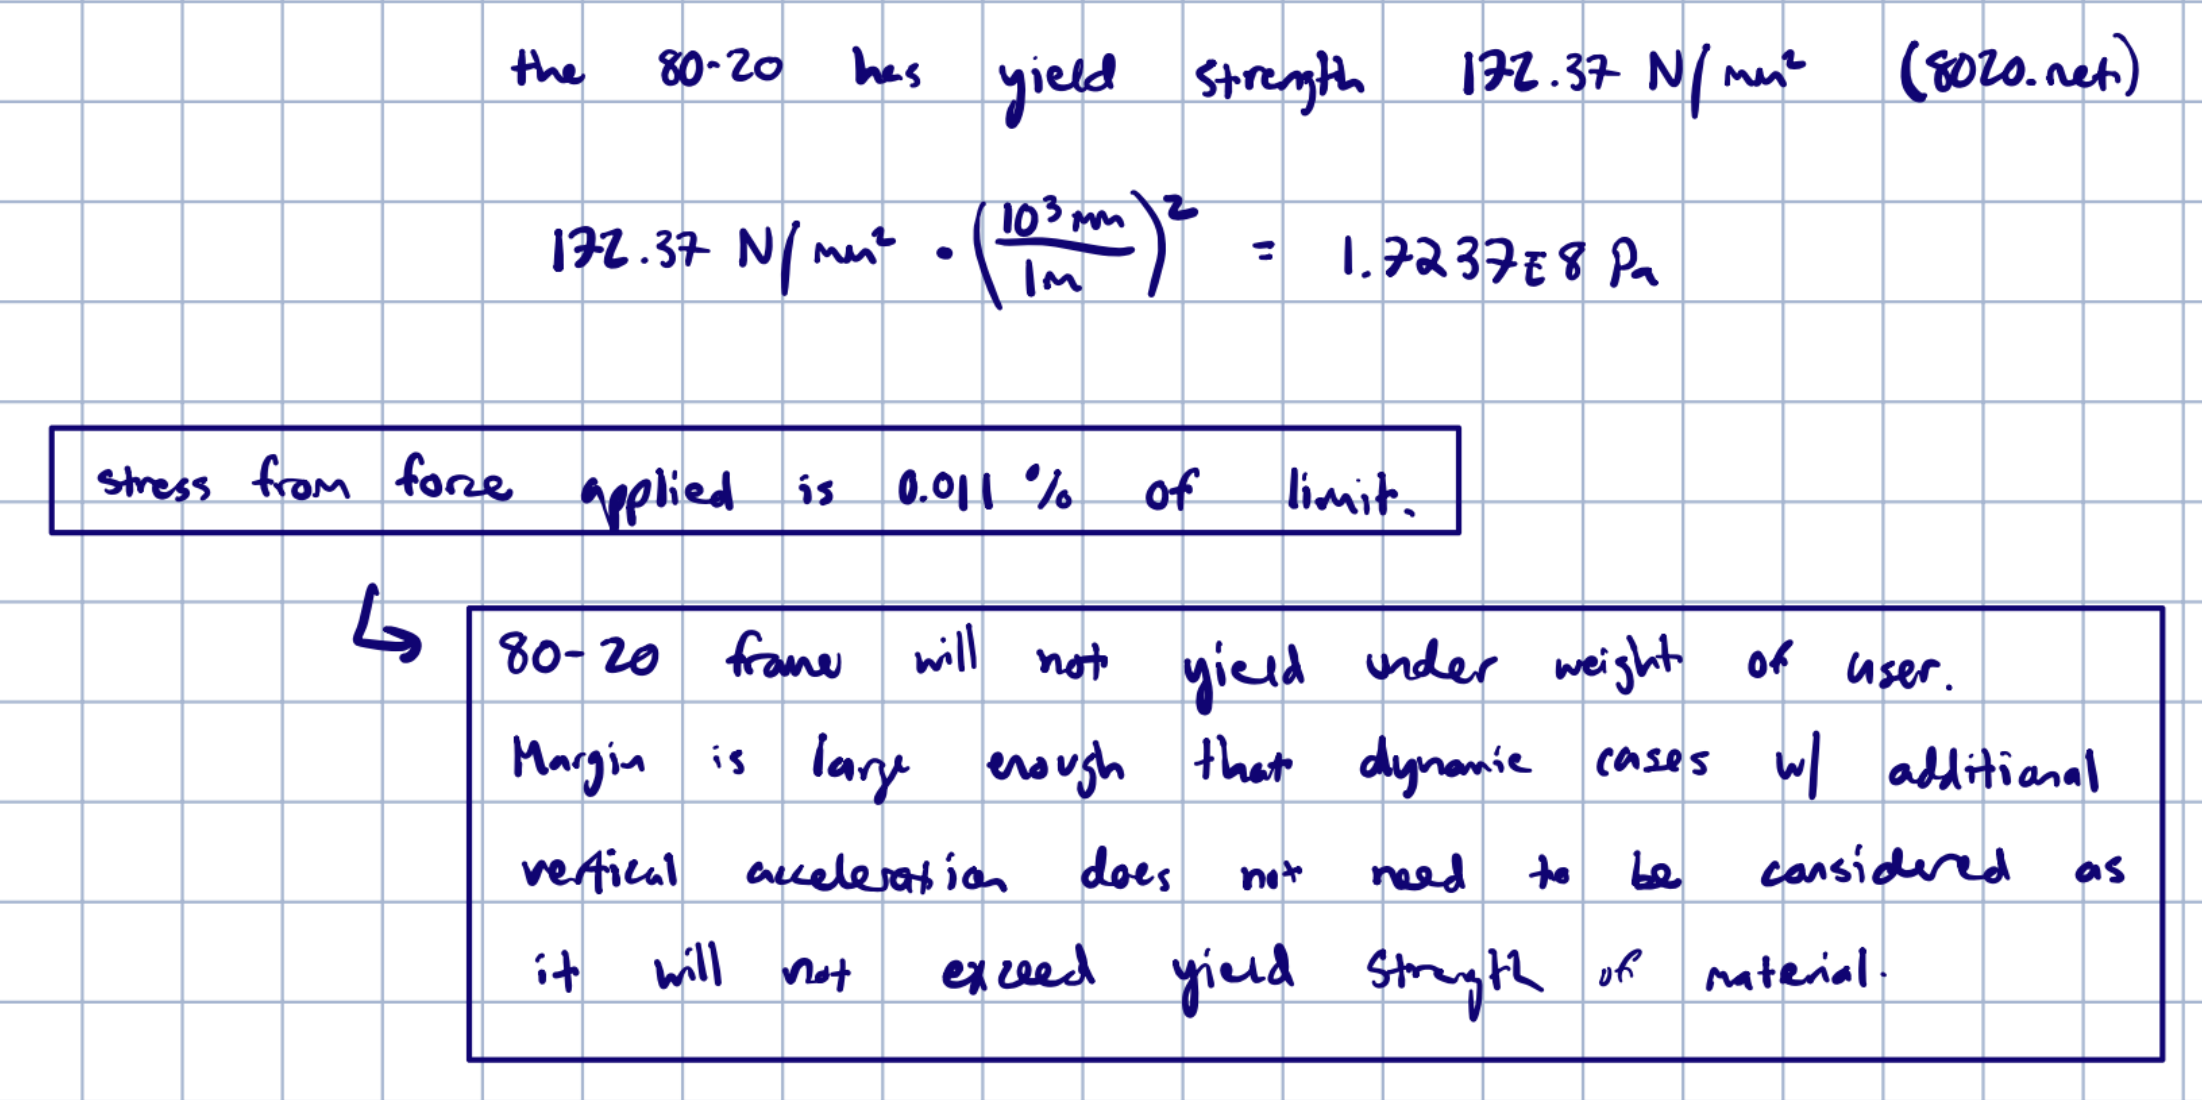 the 80-20 has yield strength 172.37 N/mm² (8020.net)
172.37 N/mm² • (10³ mm / 1m)² = 1.7237E8 Pa
stress from force applied is 0.011 % of limit.
↳ 80-20 frame will not yield under weight of user.
Margin is large enough that dynamic cases w/ additional
vertical acceleration does not need to be considered as
it will not exceed yield strength of material.